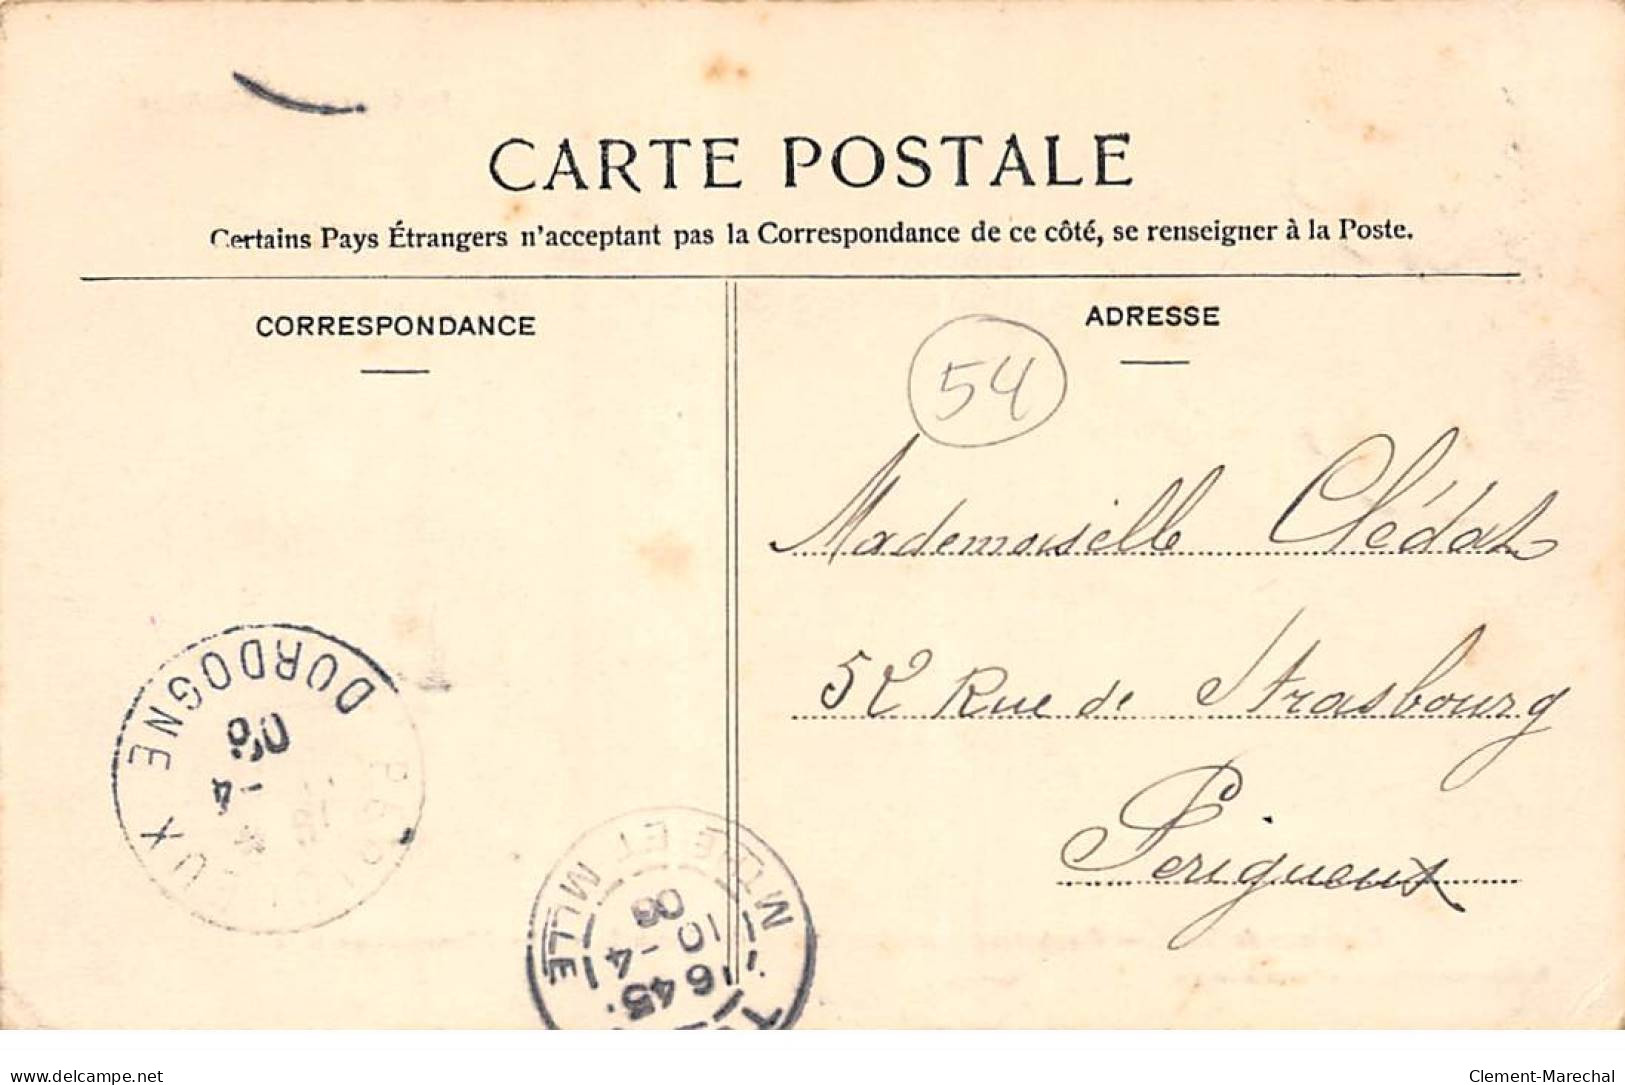 CARTE POSTALE
Certains Pays Étrangers n'acceptant pas la Correspondance de ce côté, se renseigner à la Poste.
CORRESPONDANCE
ADRESSE
54
Mademoiselle Clédat
52 Rue de Strasbourg
Périgueux
DORDOGNE
-4
06
MTRE ET MLLE
645
10 -4
06
delcampe.net
Clement-Marechal